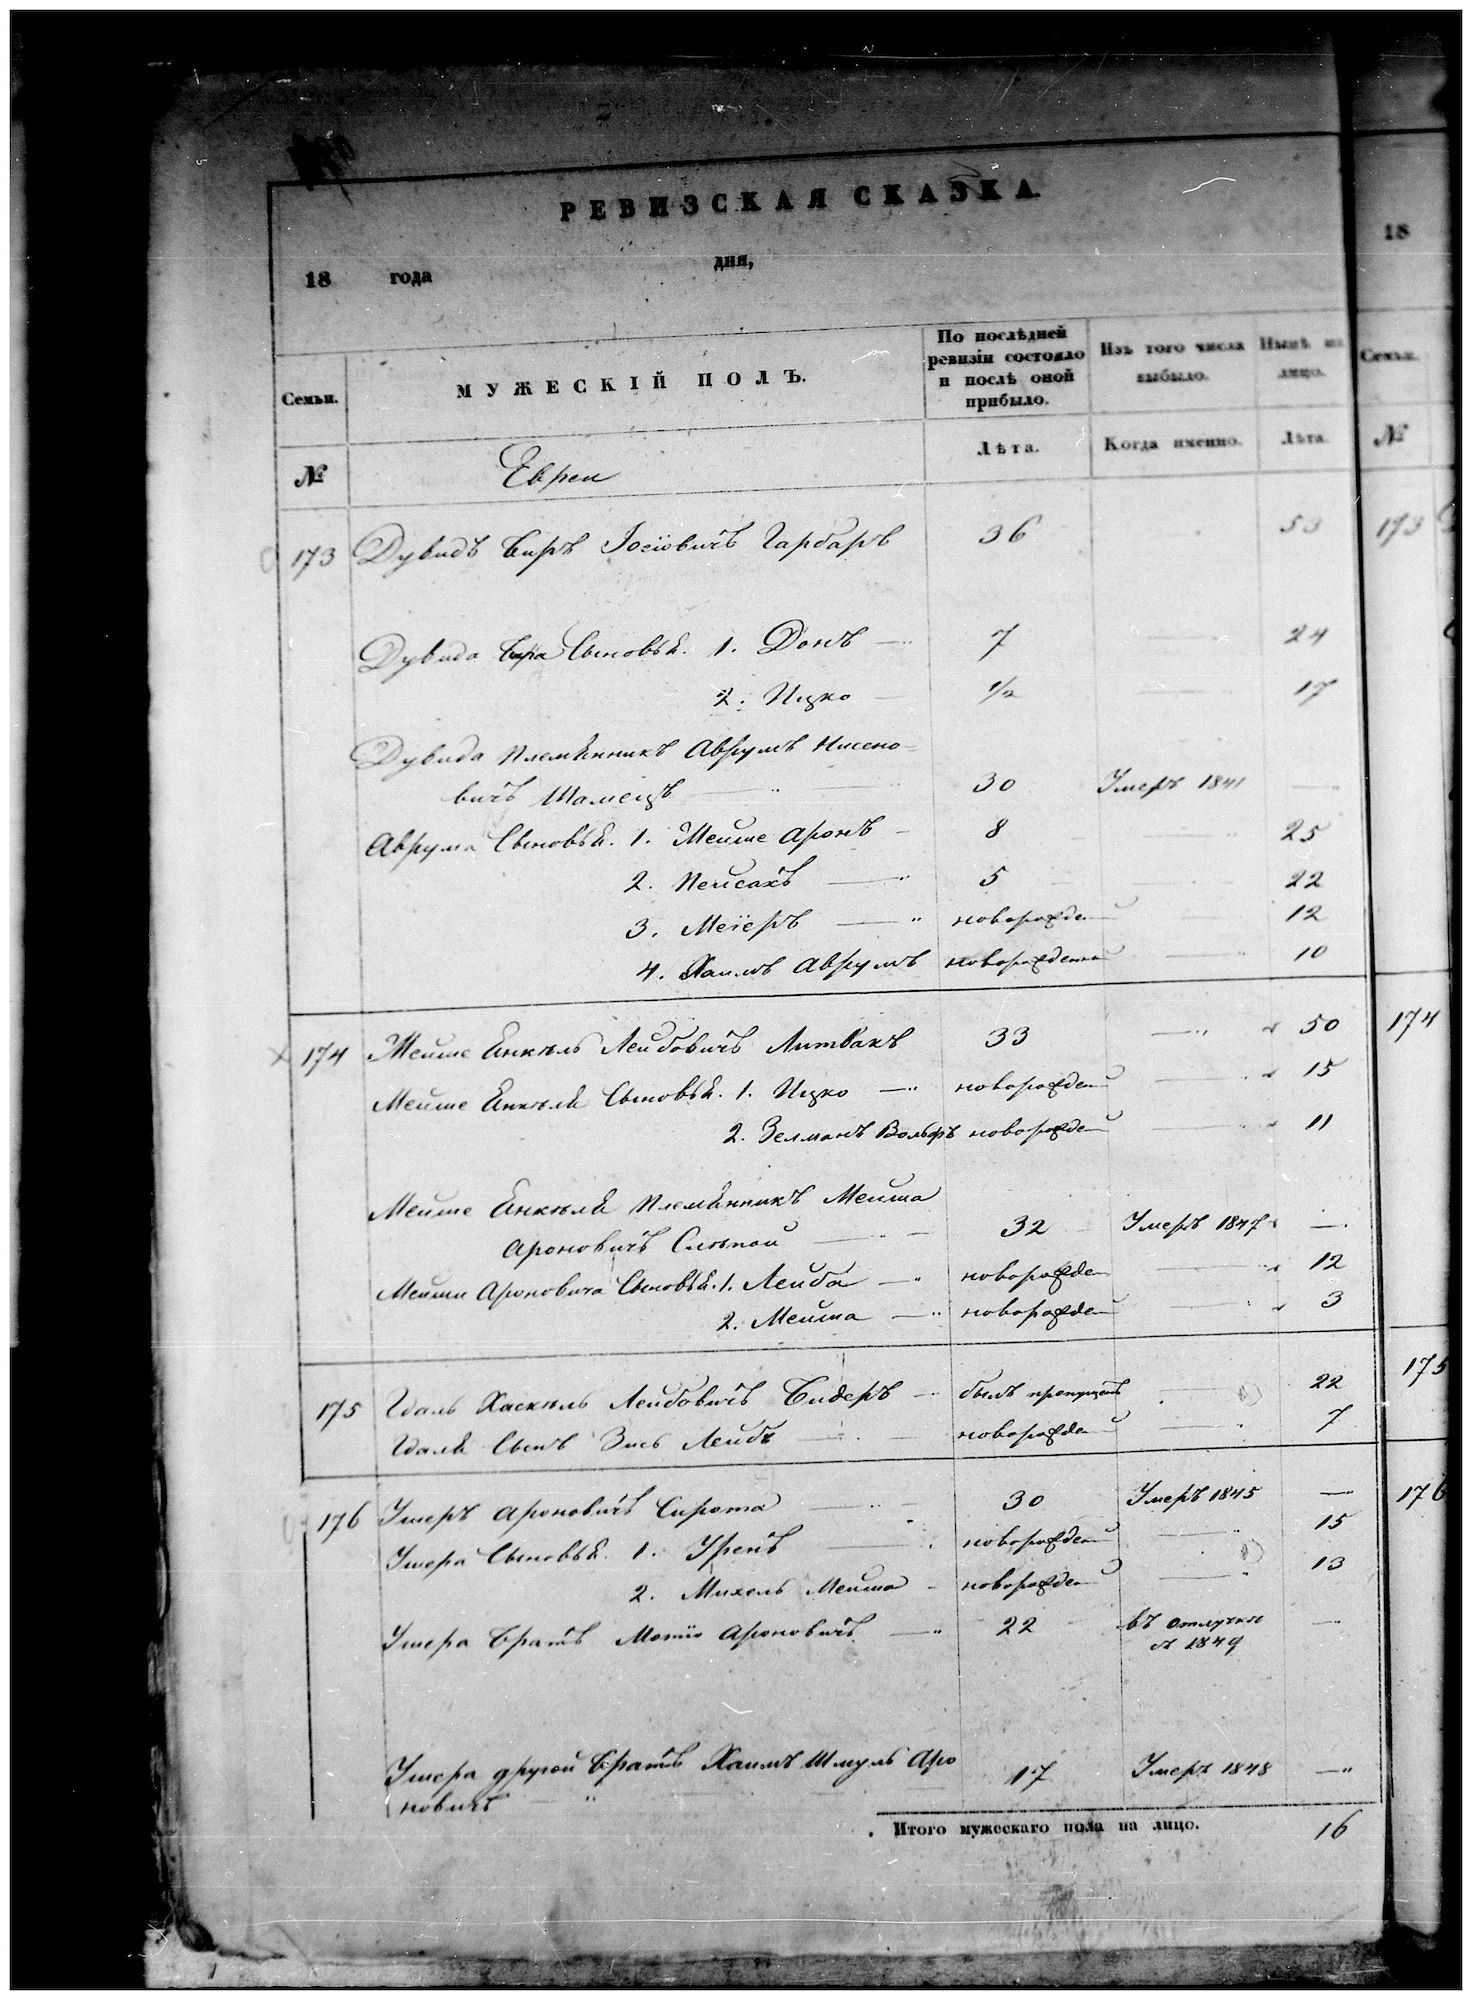 РЕВИЗСКАЯ СКАЗКА.
18 года дня,
18
Семьи.
МУЖЕСКІЙ ПОЛЪ.
По послѣдней ревизіи состояло и послѣ оной прибыло.
Изъ того числа выбыло.
Нынѣ на лицо.
Семьи.
№
Евреи
Лѣта.
Когда именно.
Лѣта.
№
173 Дувидъ Беръ Іосіовичъ Гарбаръ 36 53 173
Дувида Бера Сыновья. 1. Донъ 7 24
2. Ицко 1/2 17
Дувида племянникъ Аврумъ Нисено-
вичъ 30 Умеръ 1841
Аврума Сыновья. 1. Мейше Аронъ 8 25
2. Пейсахъ 5 22
3. Меіеръ новорожден 12
4. Хаимъ Аврумъ новорожденный 10
174 Мейше Янкель Лейбовичъ Литвакъ 33 50 174
Мейше Янкеля Сыновья. 1. Ицко новорожден 15
2. Зелманъ Вольфъ новорожден 11
Мейше Янкеля племянникъ Мейша
Ароновичъ Слѣпой 32 Умеръ 1847
Мейши Ароновича Сыновья. 1. Лейба новорожде 12
2. Мейша новорожден 3
175 Хаскель Лейбовичъ Сидеръ былъ пропущенъ 22 175
Сынъ Зусь Лейбъ новорожден 7
176 Ушеръ Ароновичъ Сирота 30 Умеръ 1845 176
Ушера Сыновья. 1. новорожден 15
2. Михель Мейша новорожден 13
Ушера Братъ Мотіо Ароновичъ 22 въ отлучкѣ
съ 1849
Ушера другой Братъ Хаимъ Шмуль Аро
новичъ 17 Умеръ 1848
Итого мужескаго пола на лицо. 16